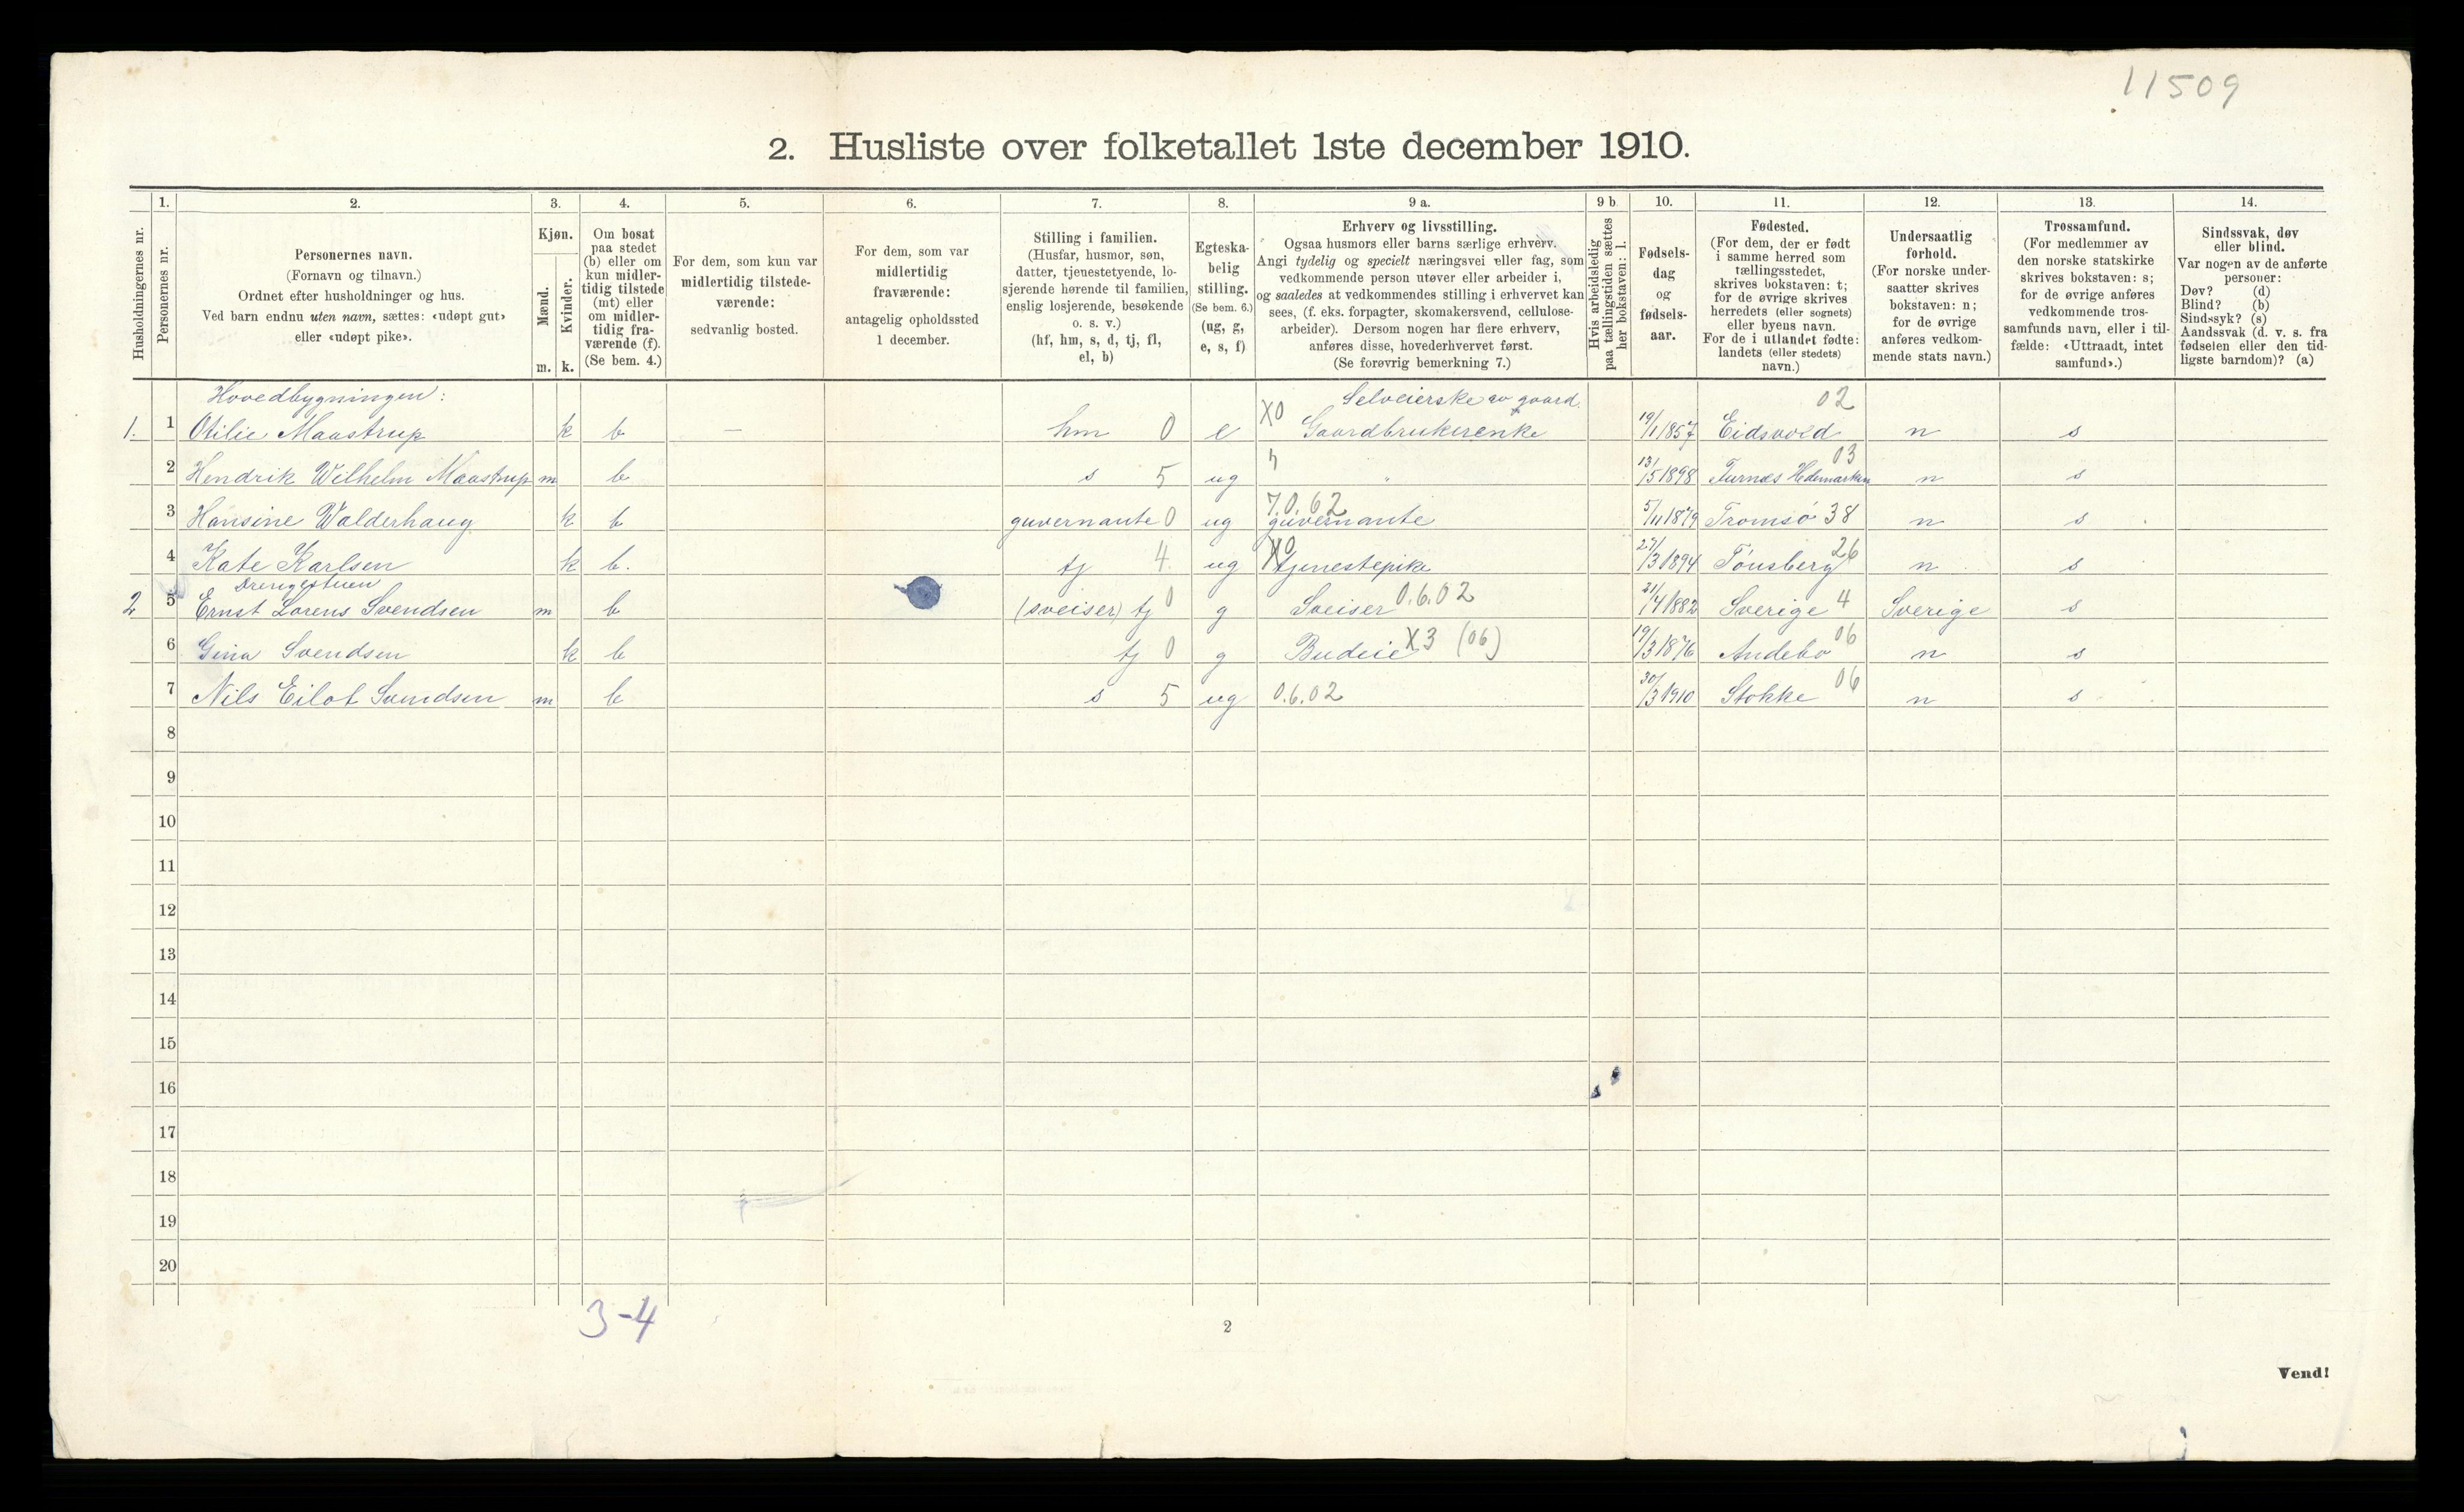 11509
2. Husliste over folketallet 1ste december 1910.
Husholdningernes nr.
1.
Personernes nr.
2.
Personernes navn.
(Fornavn og tilnavn.)
Ordnet efter husholdninger og hus.
Ved barn endnu uten navn, sættes: «udøpt gut»
eller «udøpt pike».
3.
Kjøn.
Mænd.
Kvinder.
m. k.
4.
Om bosat
paa stedet
(b) eller om
kun midler-
tidig tilstede
(mt) eller
om midler-
tidig fra-
værende (f).
(Se bem. 4.)
5.
For dem, som kun var
midlertidig tilstede-
værende:
sedvanlig bosted.
6.
For dem, som var
midlertidig
fraværende:
antagelig opholdssted
1 december.
7.
Stilling i familien.
(Husfar, husmor, søn,
datter, tjenestetyende, lo-
sjerende hørende til familien,
enslig losjerende, besøkende
o. s. v.)
(hf, hm, s, d, tj, fl,
el, b)
8.
Egteska-
belig
stilling.
(Se bem. 6.)
(ug, g,
e, s, f)
9 a.
Erhverv og livsstilling.
Ogsaa husmors eller barns særlige erhverv.
Angi tydelig og specielt næringsvei eller fag, som
vedkommende person utøver eller arbeider i,
og saaledes at vedkommendes stilling i erhvervet kan
sees, (f. eks. forpagter, skomakersvend, cellulose-
arbeider). Dersom nogen har flere erhverv,
anføres disse, hovederhvervet først.
(Se forøvrig bemerkning 7.)
9 b.
Hvis arbeidsledig
paa tællingstiden sættes
her bokstaven: l.
10.
Fødsels-
dag
og
fødsels-
aar.
11.
Fødested.
(For dem, der er født
i samme herred som
tællingsstedet,
skrives bokstaven: t;
for de øvrige skrives
herredets (eller sognets)
eller byens navn.
For de i utlandet fødte:
landets (eller stedets)
navn.)
12.
Undersaatlig
forhold.
(For norske under-
saatter skrives
bokstaven: n;
for de øvrige
anføres vedkom-
mende stats navn.)
13.
Trossamfund.
(For medlemmer av
den norske statskirke
skrives bokstaven: s;
for de øvrige anføres
vedkommende tros-
samfunds navn, eller i til-
fælde: «Uttraadt, intet
samfund».)
14.
Sindssvak, døv
eller blind.
Var nogen av de anførte
personer:
Døv? (d)
Blind? (b)
Sindssyk? (s)
Aandssvak (d. v. s. fra
fødselen eller den tid-
ligste barndom)? (a)
Hovedbygningen: Selveierske av gaard. 02
1. 1 Otilie Maastrup k b — hm 0 e X0 Gaardbrukerenke 19/1 1857 Eidsvold n s
2 Hendrik Wilhelm Maastrup m b s 5 ug " 13/5 1898 Furnæs Hedemarken 03 n s
3 Hansine Walderhaug k b guvernante 0 ug 7.0.62 guvernante 5/11 1879 Tromsø 38 n s
4 Kate Karlsen k b. tj 4 ug X0 tjenestepike 27/3 1894 Tønsberg 26 n s
Drengestuen
2 5 Ernst Lorens Svendsen m b (sveiser) tj 0 g Sveiser 0.6.02 21/4 1882 Sverige 4 Sverige s
6 Gina Svendsen k b tj 0 g Budeie X3 (06) 19/3 1876 Andebo 06 n s
7 Nils Eilot Svendsen m b s 5 ug 0.6.02 30/3 1910 Stokke 06 n s
8
9
10
11
12
13
14
15
16
17
18
19
20
3-4
2
Vend!